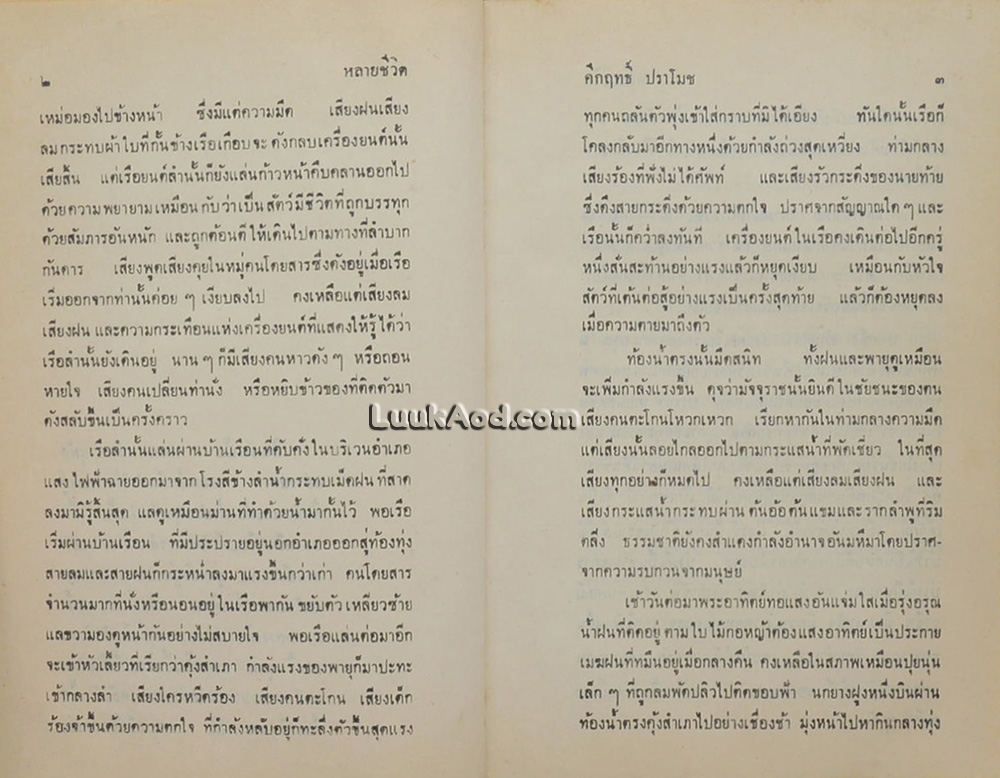 ๒
หลายชีวิต
เหม่อมองไปข้างหน้า ซึ่งมีแต่ความมืด เสียงฝนเสียง
ลมกระทบผ้าใบที่กั้นข้างเรือเกือบจะดังกลบเครื่องยนต์นั้น
เสียสิ้น แต่เรือยนต์ลำนั้นก็ยังแล่นก้าวหน้าคืบคลานออกไป
ด้วยความพยายามเหมือนกับว่าเป็นสัตว์มีชีวิตที่ถูกบรรทุก
ด้วยสัมภาระอันหนัก และถูกต้อนตีให้เดินไปตามทางที่ลำบาก
กันดาร เสียงพูดเสียงคุยในหมู่คนโดยสารซึ่งดังอยู่เมื่อเรือ
เริ่มออกจากท่านั้นค่อย ๆ เงียบลงไป คงเหลือแต่เสียงลม
เสียงฝน และความกระเทือนแห่งเครื่องยนต์ที่แสดงให้รู้ได้ว่า
เรือลำนั้นยังเดินอยู่ นาน ๆ ก็มีเสียงคนหาวดัง ๆ หรือถอน
หายใจ เสียงคนเปลี่ยนท่านั่ง หรือหยิบข้าวของที่ติดตัวมา
ดังสลับขึ้นเป็นครั้งคราว
เรือลำนั้นแล่นผ่านบ้านเรือนที่คับคั่งในบริเวณอำเภอ
แสงไฟฟ้าฉายออกมาจากโรงสีข้างลำน้ำกระทบเม็ดฝน ที่สาด
ลงมามิรู้สิ้นสุด แลดูเหมือนม่านที่ทำด้วยน้ำมากั้นไว้ พอเรือ
เริ่มผ่านบ้านเรือน ที่มีประปรายอยู่นอกอำเภอออกสู่ท้องทุ่ง
สายลมและสายฝนก็กระหน่ำลงมาแรงขึ้นกว่าเก่า คนโดยสาร
จำนวนมากที่นั่งหรือนอนอยู่ในเรือพากันขยับตัว เหลียวซ้าย
แลขวามองดูหน้ากันอย่างไม่สบายใจ พอเรือแล่นต่อมาอีก
จะเข้าหัวเลี้ยวที่เรียกว่าคุ้งสำเภา กำลังแรงของพายุก็มาปะทะ
เข้ากลางลำ เสียงใครหวีดร้อง เสียงคนตะโกน เสียงเด็ก
ร้องจ้าขึ้นด้วยความตกใจ ที่กำลังหลับอยู่ก็ทะลึ่งตัวขึ้นสุดแรง
คึกฤทธิ์ ปราโมช
๓
ทุกคนถลันตัวพุ่งเข้าใส่กราบที่มิได้เอียง ทันใดนั้นเรือก็
โคลงกลับมาอีกทางหนึ่งด้วยกำลังถ่วงสุดเหวี่ยง ท่ามกลาง
เสียงร้องที่ฟังไม่ได้ศัพท์ และเสียงรัวกระดิ่งของนายท้าย
ซึ่งดึงสายกระดิ่งด้วยความตกใจ ปราศจากสัญญาณใด ๆ และ
เรือนั้นก็คว่ำลงทันที เครื่องยนต์ในเรือคงเดินต่อไปอีกครู่
หนึ่งสั่นสะท้านอย่างแรงแล้วก็หยุดเงียบ เหมือนกับหัวใจ
สัตว์ที่เต้นต่อสู้อย่างแรงเป็นครั้งสุดท้าย แล้วก็ต้องหยุดลง
เมื่อความตายมาถึงตัว
ท้องน้ำตรงนั้นมืดสนิท ทั้งฝนและพายุดูเหมือน
จะเพิ่มกำลังแรงขึ้น ดุจว่ามัจจุราชนั้นยินดีในชัยชนะของตน
เสียงคนตะโกนโหวกเหวก เรียกหากันในท่ามกลางความมืด
แต่เสียงนั้นลอยไกลออกไปตามกระแสน้ำที่พัดเชี่ยว ในที่สุด
เสียงทุกอย่างก็หมดไป คงเหลือแต่เสียงลมเสียงฝน และ
เสียงกระแสน้ำกระทบผ่านต้นอ้อต้นแขมและรากลำพูที่ริม
ตลิ่ง ธรรมชาติยังคงสำแดงกำลังอำนาจอันมหึมาโดยปราศ-
จากความรบกวนจากมนุษย์
เช้าวันต่อมาพระอาทิตย์ทอแสงอันแจ่มใสเมื่อรุ่งอรุณ
น้ำฝนที่ติดอยู่ตามใบไม้กอหญ้าต้องแสงอาทิตย์เป็นประกาย
เมฆฝนที่ทมึนอยู่เมื่อกลางคืน คงเหลือในสภาพเหมือนปุยนุ่น
เล็ก ๆ ที่ถูกลมพัดปลิวไปติดขอบฟ้า นกยางฝูงหนึ่งบินผ่าน
ท้องน้ำตรงคุ้งสำเภาไปอย่างเชื่องช้า มุ่งหน้าไปหากินกลางทุ่ง
LuukAod.com